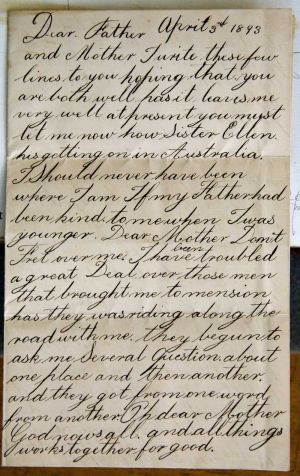 Dear Father April 3rd 1893
and Mother I write these few
lines to you hoping that you
are both well has it leaves me
very well at present you must
let me now how Sister Ellen
his getting on in Australia.
I Should never have been
where I am If my Father had
been kind to me when I was
younger. Dear Mother Don't
Fret over me, I have been troubled
a great Deal over those men
that brought me to mension
has they was riding along the
road with me. they begun to
ask me Several Question about
one place and then another.
and they got from one word
from another Oh dear Mother
God nows all. and all things
works together for good.